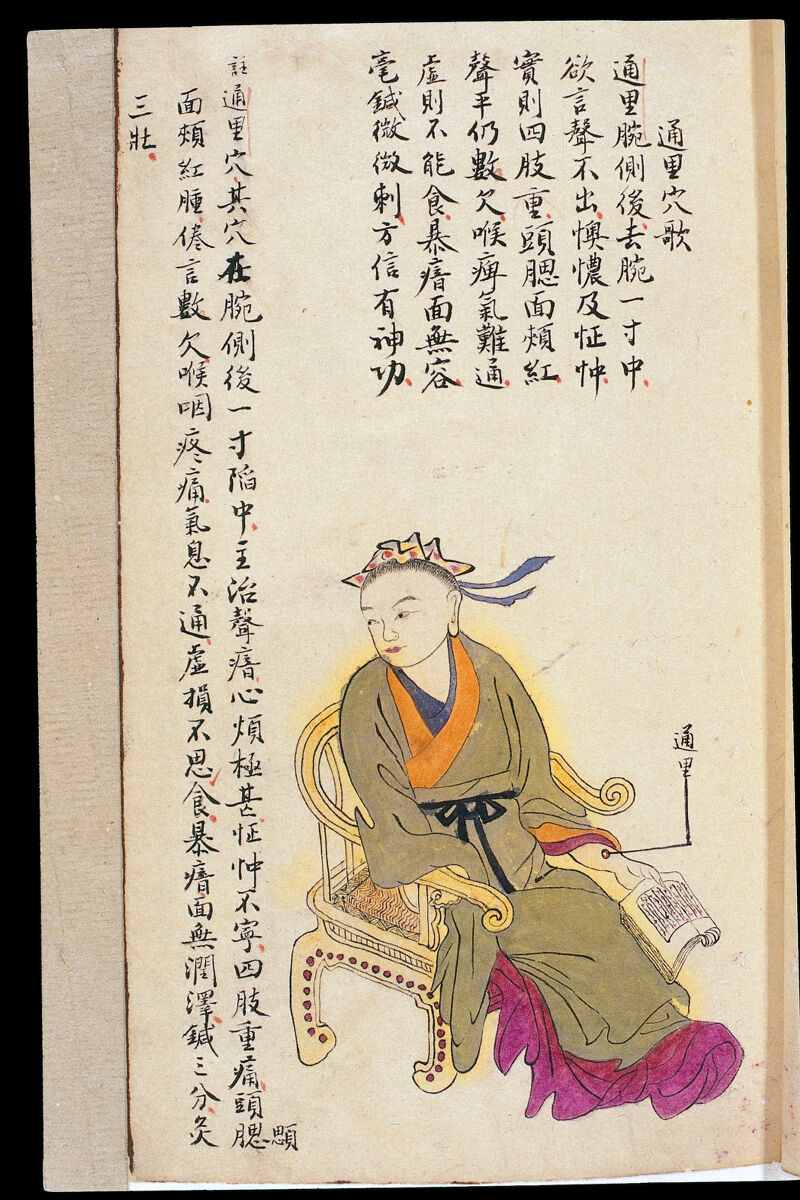 通里穴歌
通里腕側後去腕一寸中
欲言聲不出懊憹及怔忡
實則四肢重頭腮面頰紅
聲平仍數欠喉痺氣難通
虛則不能食暴瘖面無容
毫鍼微微刺方信有神功
註通里穴其穴在腕側後一寸陷中主治聲瘖心煩極甚怔忡不寧四肢重痛頭腮
顋
面頰紅腫倦言數欠喉咽疼痛氣息不通虛損不思食暴瘖面無潤澤鍼三分灸
三壯
通里